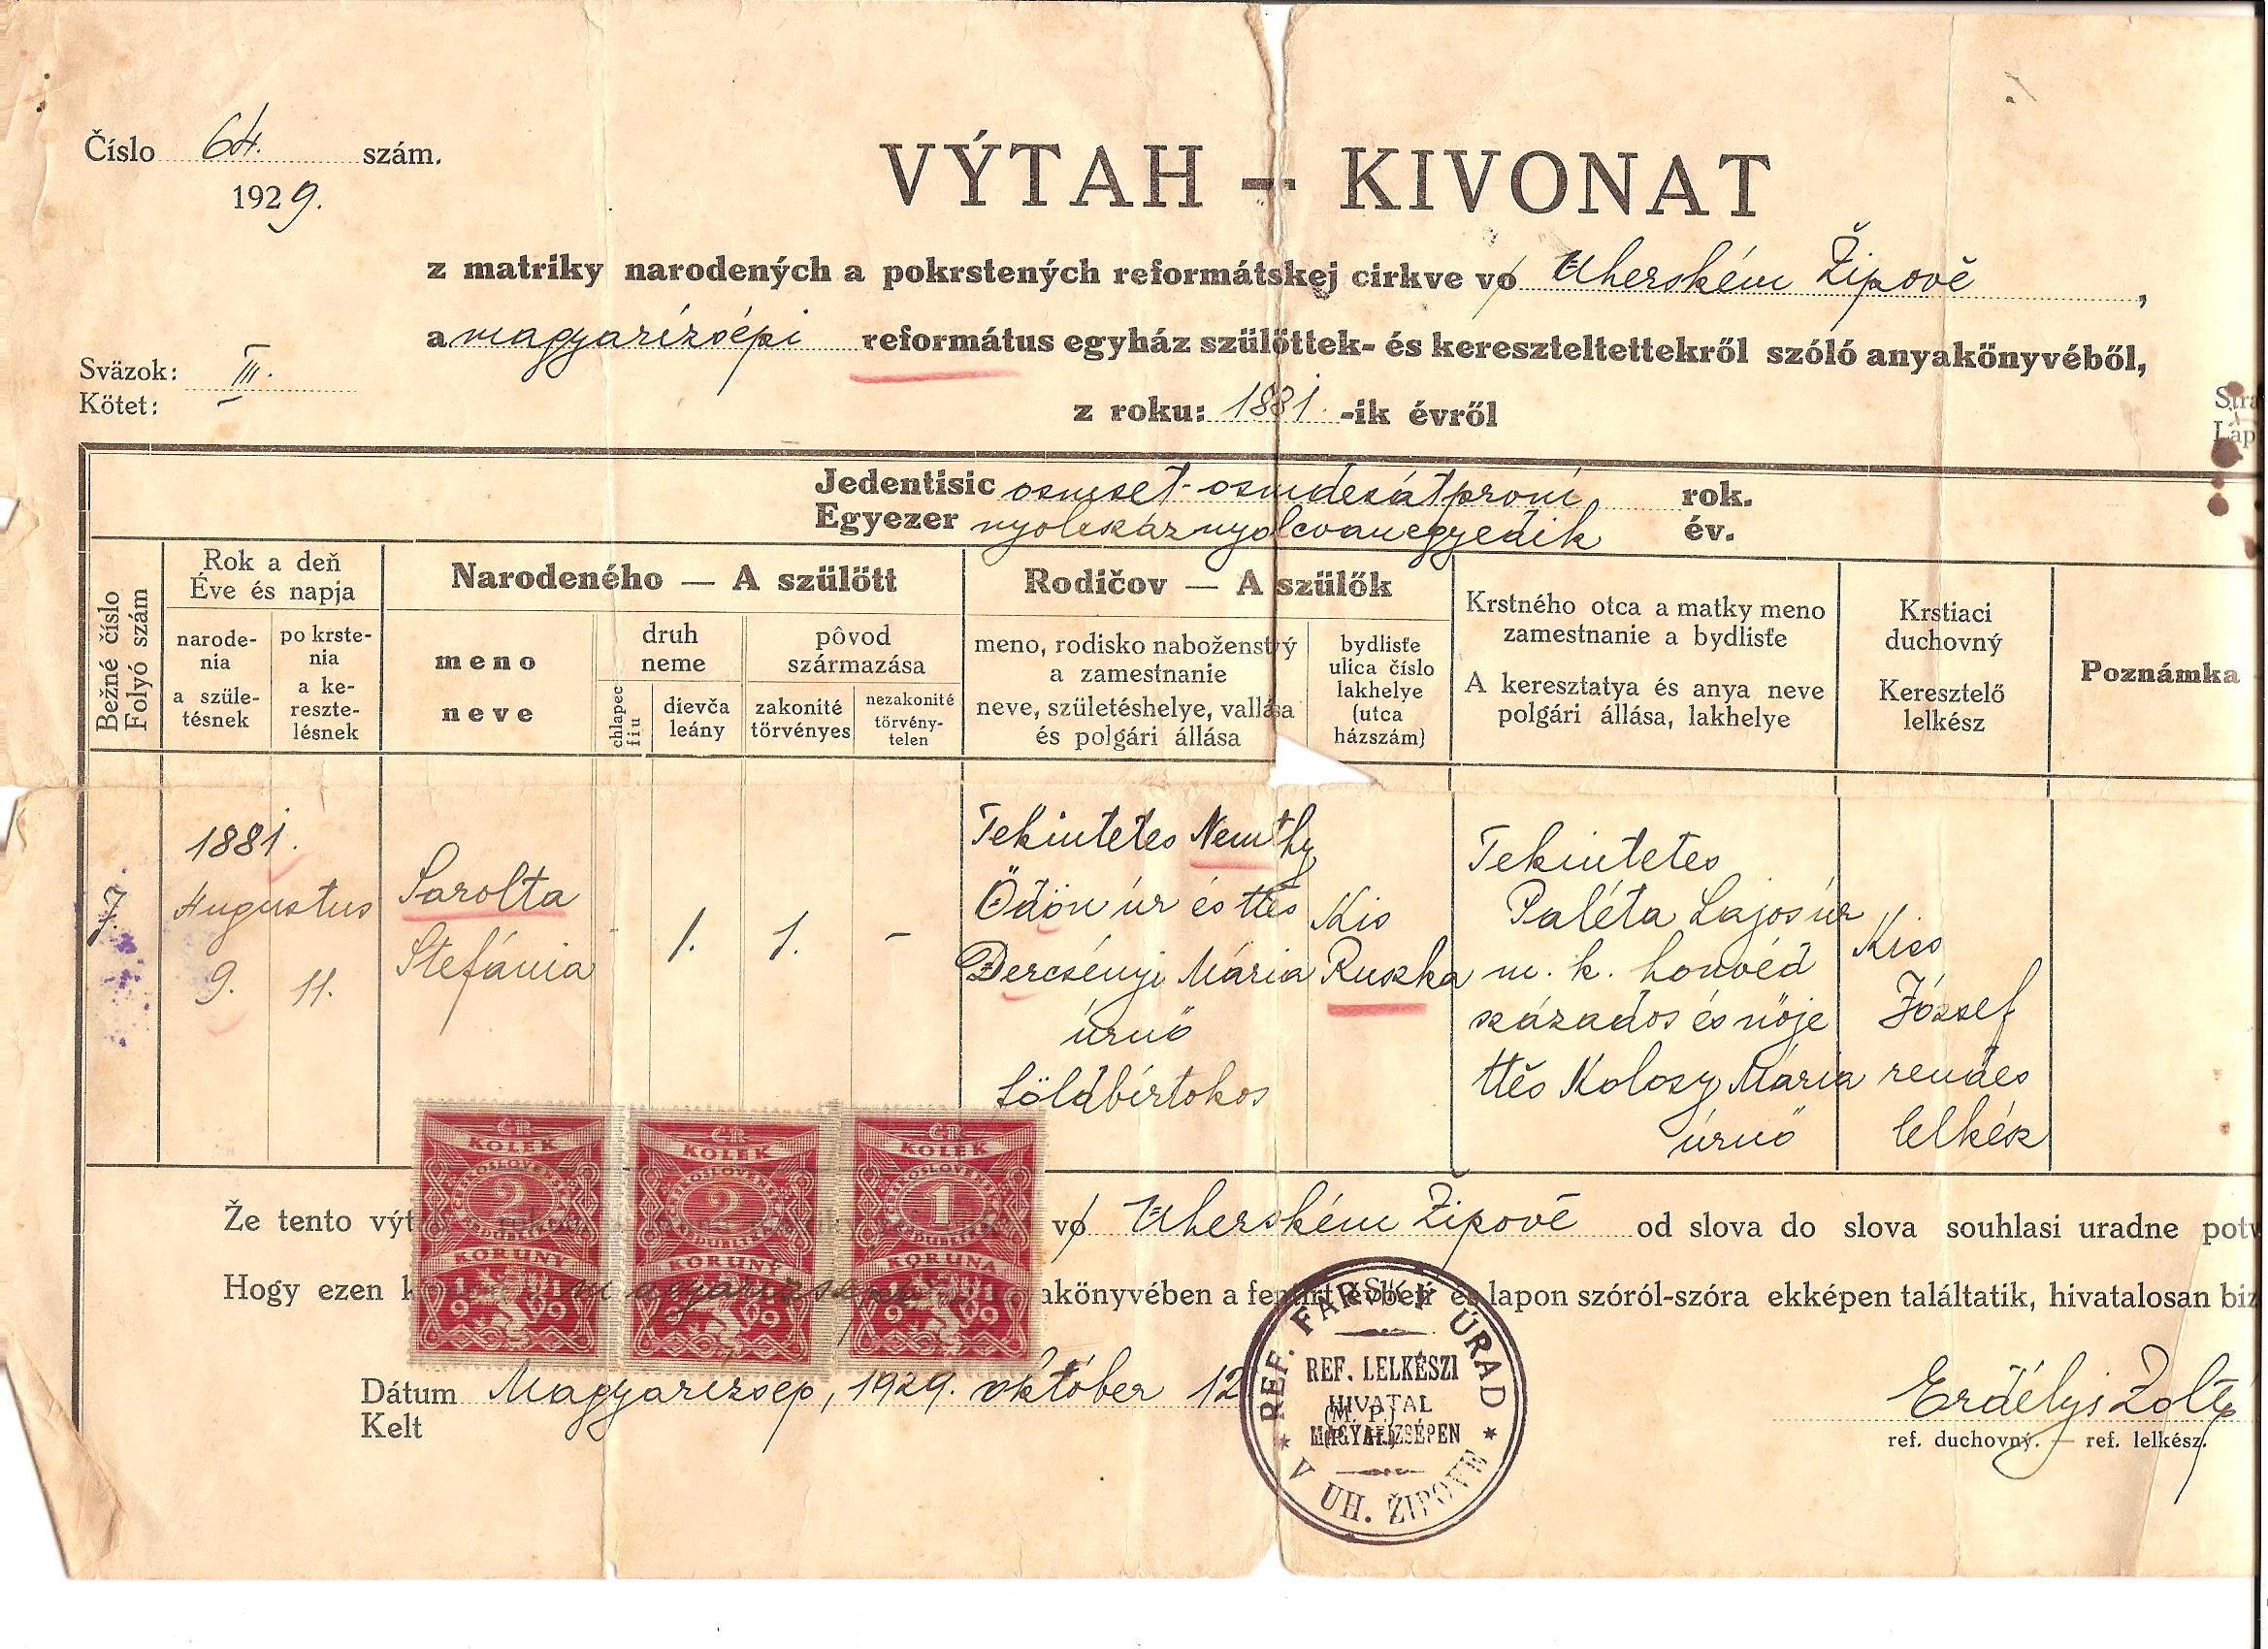 Číslo 64. szám.
1929.
VÝTAH — KIVONAT
z matriky narodených a pokrstených reformátskej cirkve vo Uherském Žipově,
a magyarizsépi református egyház szülöttek- és kereszteltettekről szóló anyakönyvéből,
Sväzok: III.
Kötet:
z roku: 1881. -ik évről
Stra
Lap
Jedentisic osmset-osmdesátprvní rok.
Egyezer nyolcszáznyolcvanegyedik év.
Bežné číslo
Folyó szám
Rok a deň
Éve és napja
narode-
nia
a szüle-
tésnek
po krste-
nia
a ke-
reszte-
lésnek
Narodeného — A szülött
meno
neve
druh
neme
chlapec
fiu
dievča
leány
pôvod
származása
zakonité
törvényes
nezakonité
törvény-
telen
Rodičov — A szülők
meno, rodisko naboženstvý
a zamestnanie
neve, születéshelye, vallása
és polgári állása
bydlisťe
ulica číslo
lakhelye
(utca
házszám)
Krstného otca a matky meno
zamestnanie a bydlisťe
A keresztatya és anya neve
polgári állása, lakhelye
Krstiaci
duchovný
Keresztelő
lelkész
Poznámka
7.
1881.
Augustus
9. 11.
Sarolta
Stefánia
1. 1. –
Tekintetes Nemthy
Ödön úr és ttes
Dercsényi Mária
úrnő
földbirtokos
Kis
Ruszka
Tekintetes
Paléta Lajos úr
m. k. honvéd
százados és nője
ttes Kolosy Mária
úrnő
Kiss
József
rendes
lelkész
Že tento výt vo Uherském Žipově od slova do slova souhlasi uradne potv
Hogy ezen k magyarizsépi akönyvében a fentirt évben és lapon szóról-szóra ekképen találtatik, hivatalosan biz
KOLEK
2
KORUNY
1919
KOLEK
2
KORUNY
1919
KOLEK
1
KORUNA
1919
Dátum Magyarizsép, 1929. október 12
Kelt
REF. FARSKÝ ÚRAD
REF. LELKÉSZI
HIVATAL
(M. P.)
MAGYARIZSÉPEN
V UH. ŽIPOVE
Erdélyi Zolt
ref. duchovný. — ref. lelkész.